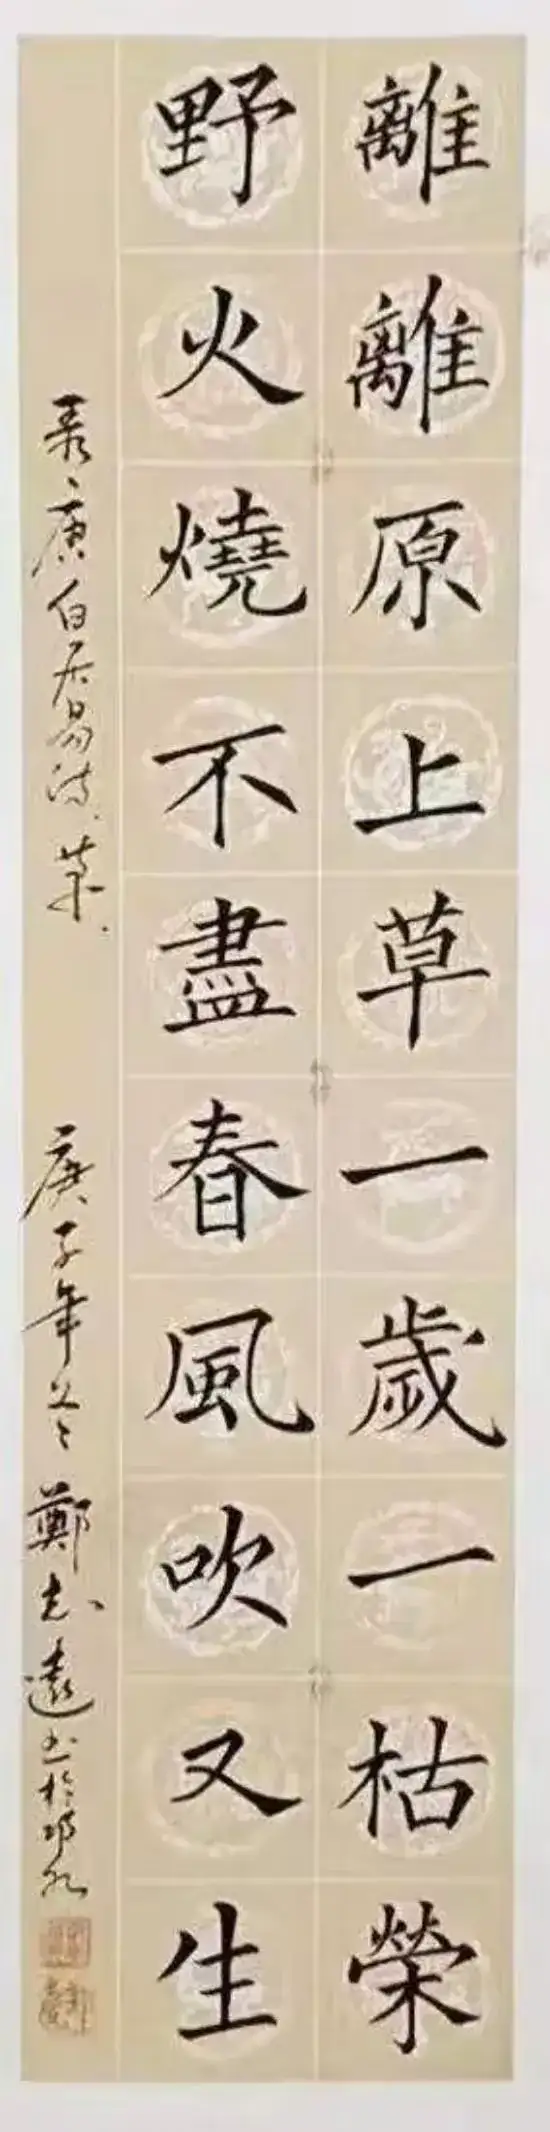 離離原上草一歲一枯榮
野火燒不盡春風吹又生
录唐白居易詩草
庚子年冬鄭志遠書於